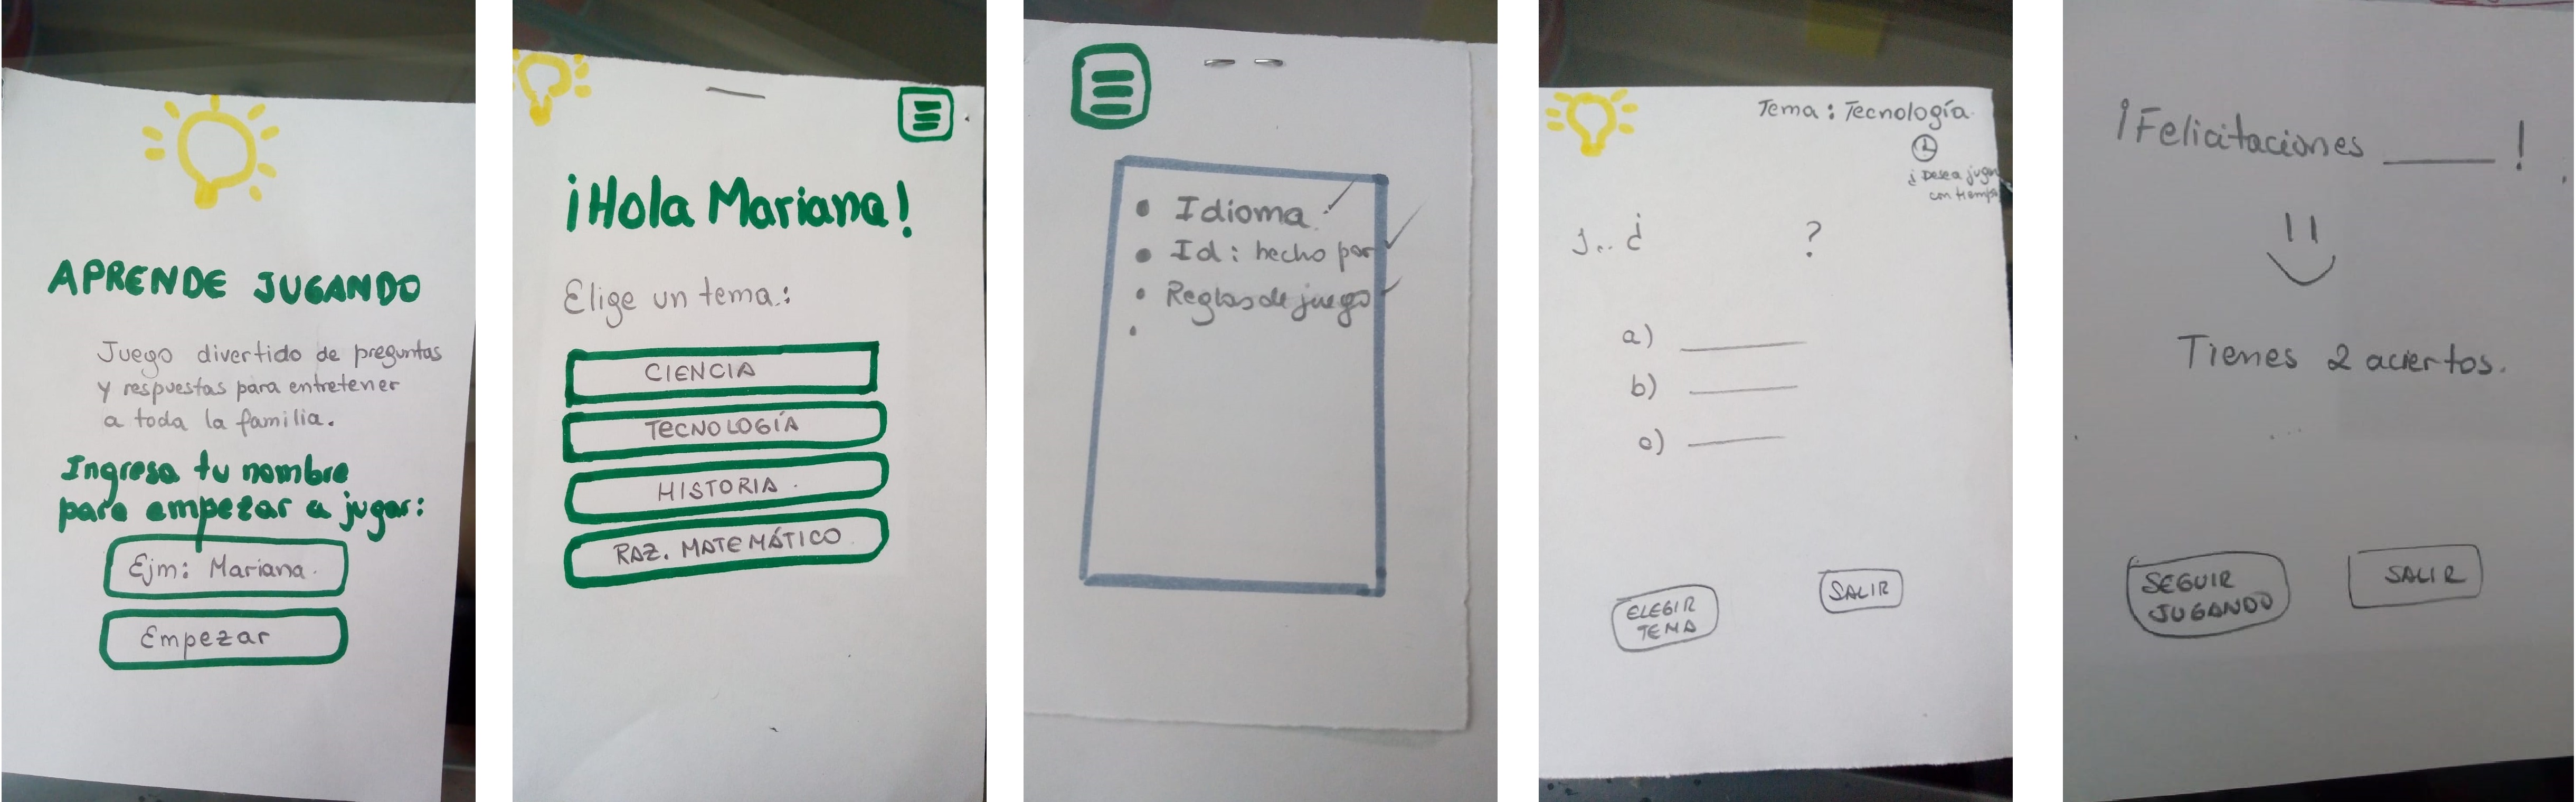 APRENDE JUGANDO
Juego divertido de preguntas
y respuestas para entretener
a toda la familia.
Ingresa tu nombre
para empezar a jugar:
Ejm: Mariana.
Empezar
¡Hola Mariana!
Elige un tema:
CIENCIA
TECNOLOGÍA
HISTORIA
RAZ. MATEMÁTICO
• Idioma
• Id: hecho por
• Reglas de juego
•
Tema: Tecnología
¿Desea jugar
con tiempo
1.. ¿ ?
a)
b)
c)
ELEGIR
TEMA
SALIR
¡Felicitaciones ______!
Tienes 2 aciertos.
SEGUIR
JUGANDO
SALIR